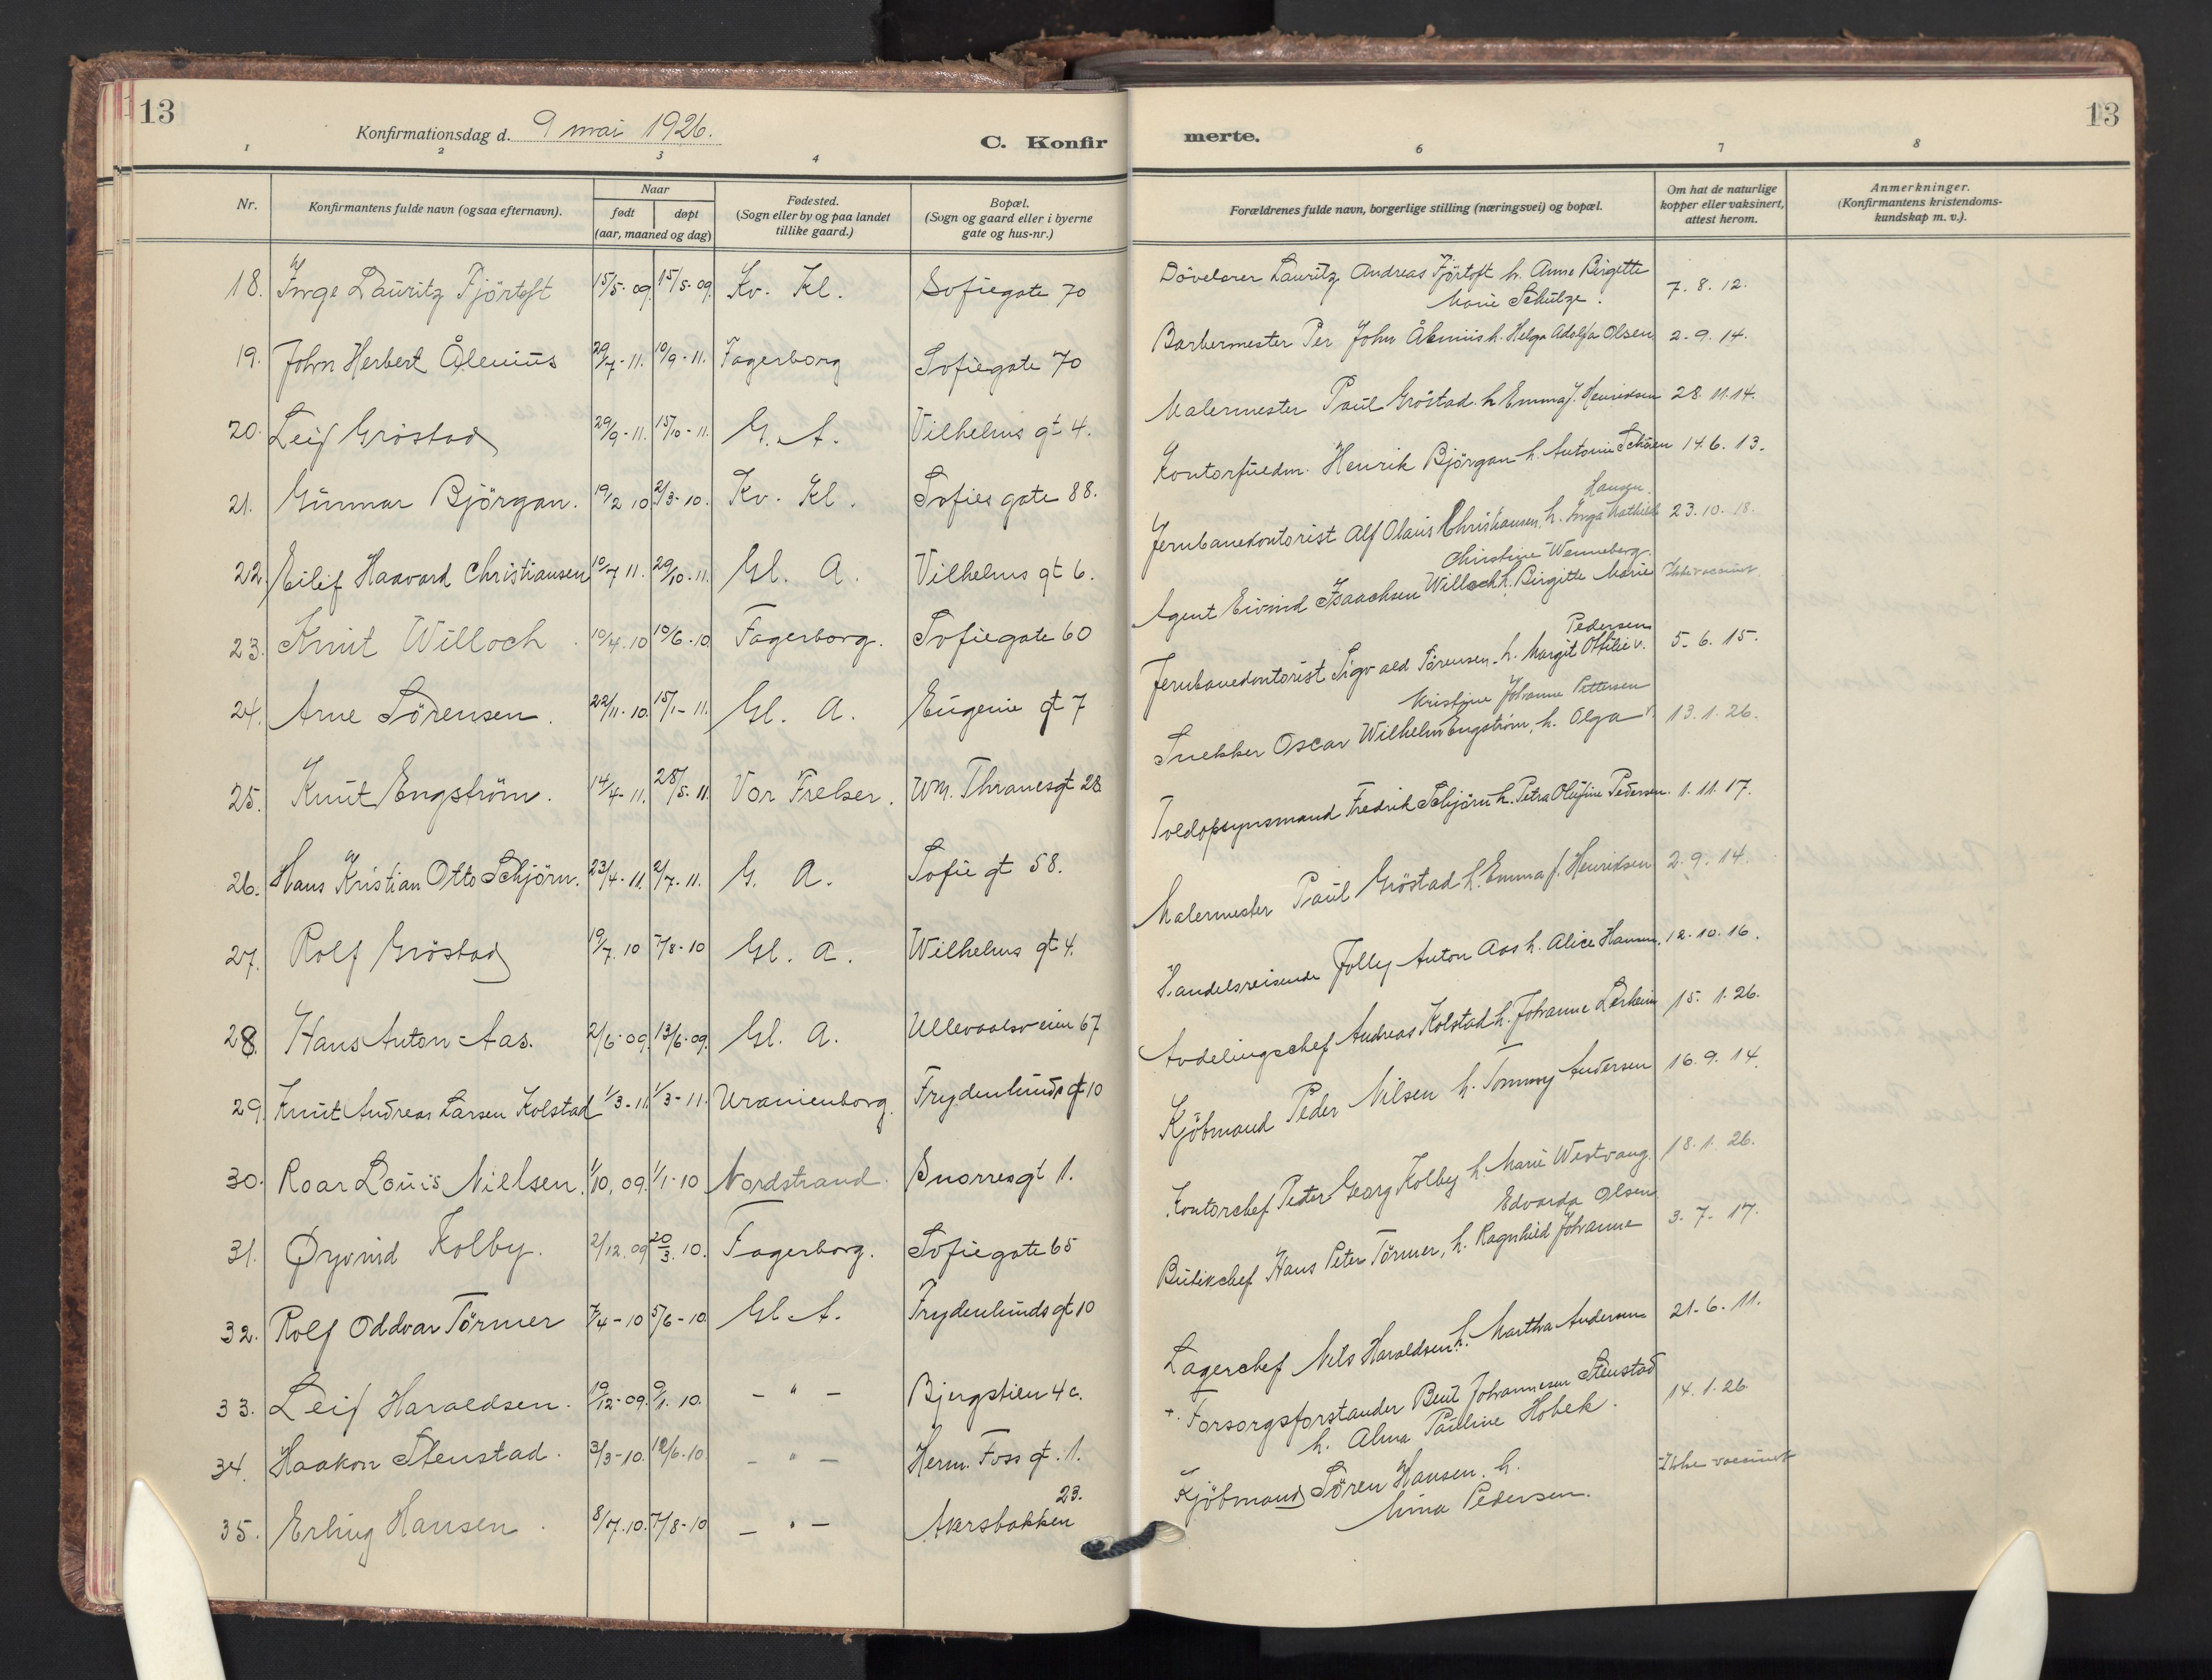 13
Konfirmationsdag d. 9 mai 1926.
C. Konfir
merte.
13
1 2 3 4 6 7 8
Nr.
Konfirmantens fulde navn (ogsaa efternavn).
Naar
født
døpt
(aar, maaned og dag)
Fødested.
(Sogn eller by og paa landet
tillike gaard.)
Bopæl.
(Sogn og gaard eller i byerne
gate og hus-nr.)
Forældrenes fulde navn, borgerlige stilling (næringsvei) og bopæl.
Om hat de naturlige
kopper eller vaksinert,
attest herom.
Anmerkninger.
(Konfirmantens kristendoms-
kundskap m. v.).
18. Inge Lauritz Fjörtoft 15/5-09 15/5-09. Kv. Kl. Sofiegate 70
Dövelærer Lauritz Andreas Fjörtoft h. Anne Birgitte
Marie Schulze. 7. 8. 12.
19. John Herbert Ålenius 29/7-11. 10/9-11. Fagerborg Sofiegate 70
Barbermester Per John Ålenius h. Helga Adolfa Olsen 2. 9. 14.
20. Leif Gröstad 29/9-11. 15/10-11. G. A. Vilhelms gt 4.
Malermester Paul Gröstad h Emma J. Henriksen 28. 11. 14.
21. Gunnar Björgan. 19/2 10 2/3-10. Kv. Kl. Sofies gate 88.
Kontorfuldm. Henrik Björgan h. Antonie Schöien 14. 6. 13.
22. Eilif Haavard Christiansen 10/7 11. 29/10-11. Gl. A. Vilhelms gt 6.
Hansen.
Jernbanekontorist Alf Olaus Christiansen, h. Inga Mathilde 23. 10. 18.
23. Knut Willoch 10/4. 10 10/6-10. Fagerborg. Sofiegate 60
Christine Wenneberg.
Agent Eivind Isaachsen Willoch h. Birgitte Marie Ikke vaccinert
24. Arne Sörensen. 22/11-10. 15/1-11. Gl. A. Eugenie gt 7
Pedersen
Jernbanekontorist Sigvald Sörensen. h. Margit Ottilie v. 5. 6. 15.
25. Knut Engström. 14/4-11. 28/5-11. Vor Frelser. Wm. Thranesgt 28
Kristine Johanne Pettersen
Snekker Oscar Wilhelm Engström, h. Olga v. 13. 1. 26.
26. Hans Kristian Otto Schjörn. 23/4-11. 2/7-11. G. A. Sofie gt 58.
Toldopsynsmand Fredrik Schjörn h. Petra Olufine Pedersen. 1. 11. 17.
27. Rolf Gröstad 19/7. 10 7/8-10 Gl. A. Wilhelms gt 4.
Malermester Paul Gröstad h. Emma J. Henriksen 2. 9. 14.
28. Hans Anton Aas. 2/6-09. 13/6-09. Gl. A. Ullevaalsveien 67
Handelsreisende Jolly Anton Aas h. Alice Hansen. 12. 10. 16.
29. Knut Andreas Larsen Kolstad 1/3-11. 1/3-11. Uranienborg. Frydenlunds gt 10
Avdelingschef Andreas Kolstad h. Johanne Lerheim 15. 1. 26.
30. Roar Louis Nielsen. 1/10. 09. 1/1-10 Nordstrand. Snorresgt 1.
Kjöbmand Peder Nilsen h. Tommy Andersen 16. 9. 14.
31. Øyvind Kolby. 2/12. 09 20/3. 10. Fagerborg. Sofiegate 65
Kontorchef Peter Georg Kolby h. Marie Westvang. 18. 1. 26.
32. Rolf Oddvar Törmer 7/4-10 5/6-10. Gl. A. Frydenlunds gt 10
Edvarda Olsen
Butikchef Hans Peter Törmer, h. Ragnhild Johanne 3. 7. 17.
33. Leif Haraldsen. 19/12-09. 9/1. 10. - " - Bjergstien 4 c.
Lagerchef Nils Haraldsen h. Martha Andersen 21. 6. 11.
34. Haakon Stenstad. 3/3-10. 12/6-10. - " - Herm. Foss gt. 1.
+. Forsorgsforstander Bent Johannesen Stenstad
h. Alma Pauline Hobek. 14. 1. 26.
35. Erling Hansen. 8/7. 10. 7/8-10 - " - Akersbakken 23.
Kjöbmand Sören Hansen. h.
Mina Pedersen. Ikke vaccinert